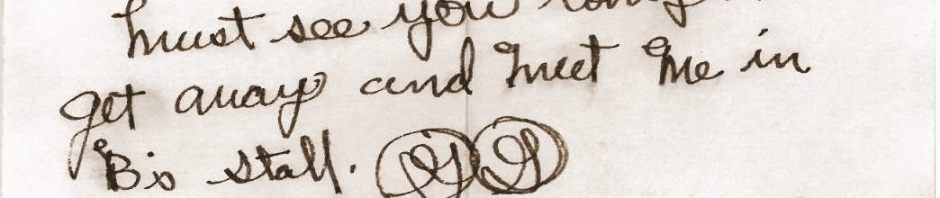 must see you
get away and meet me in
B's stall.